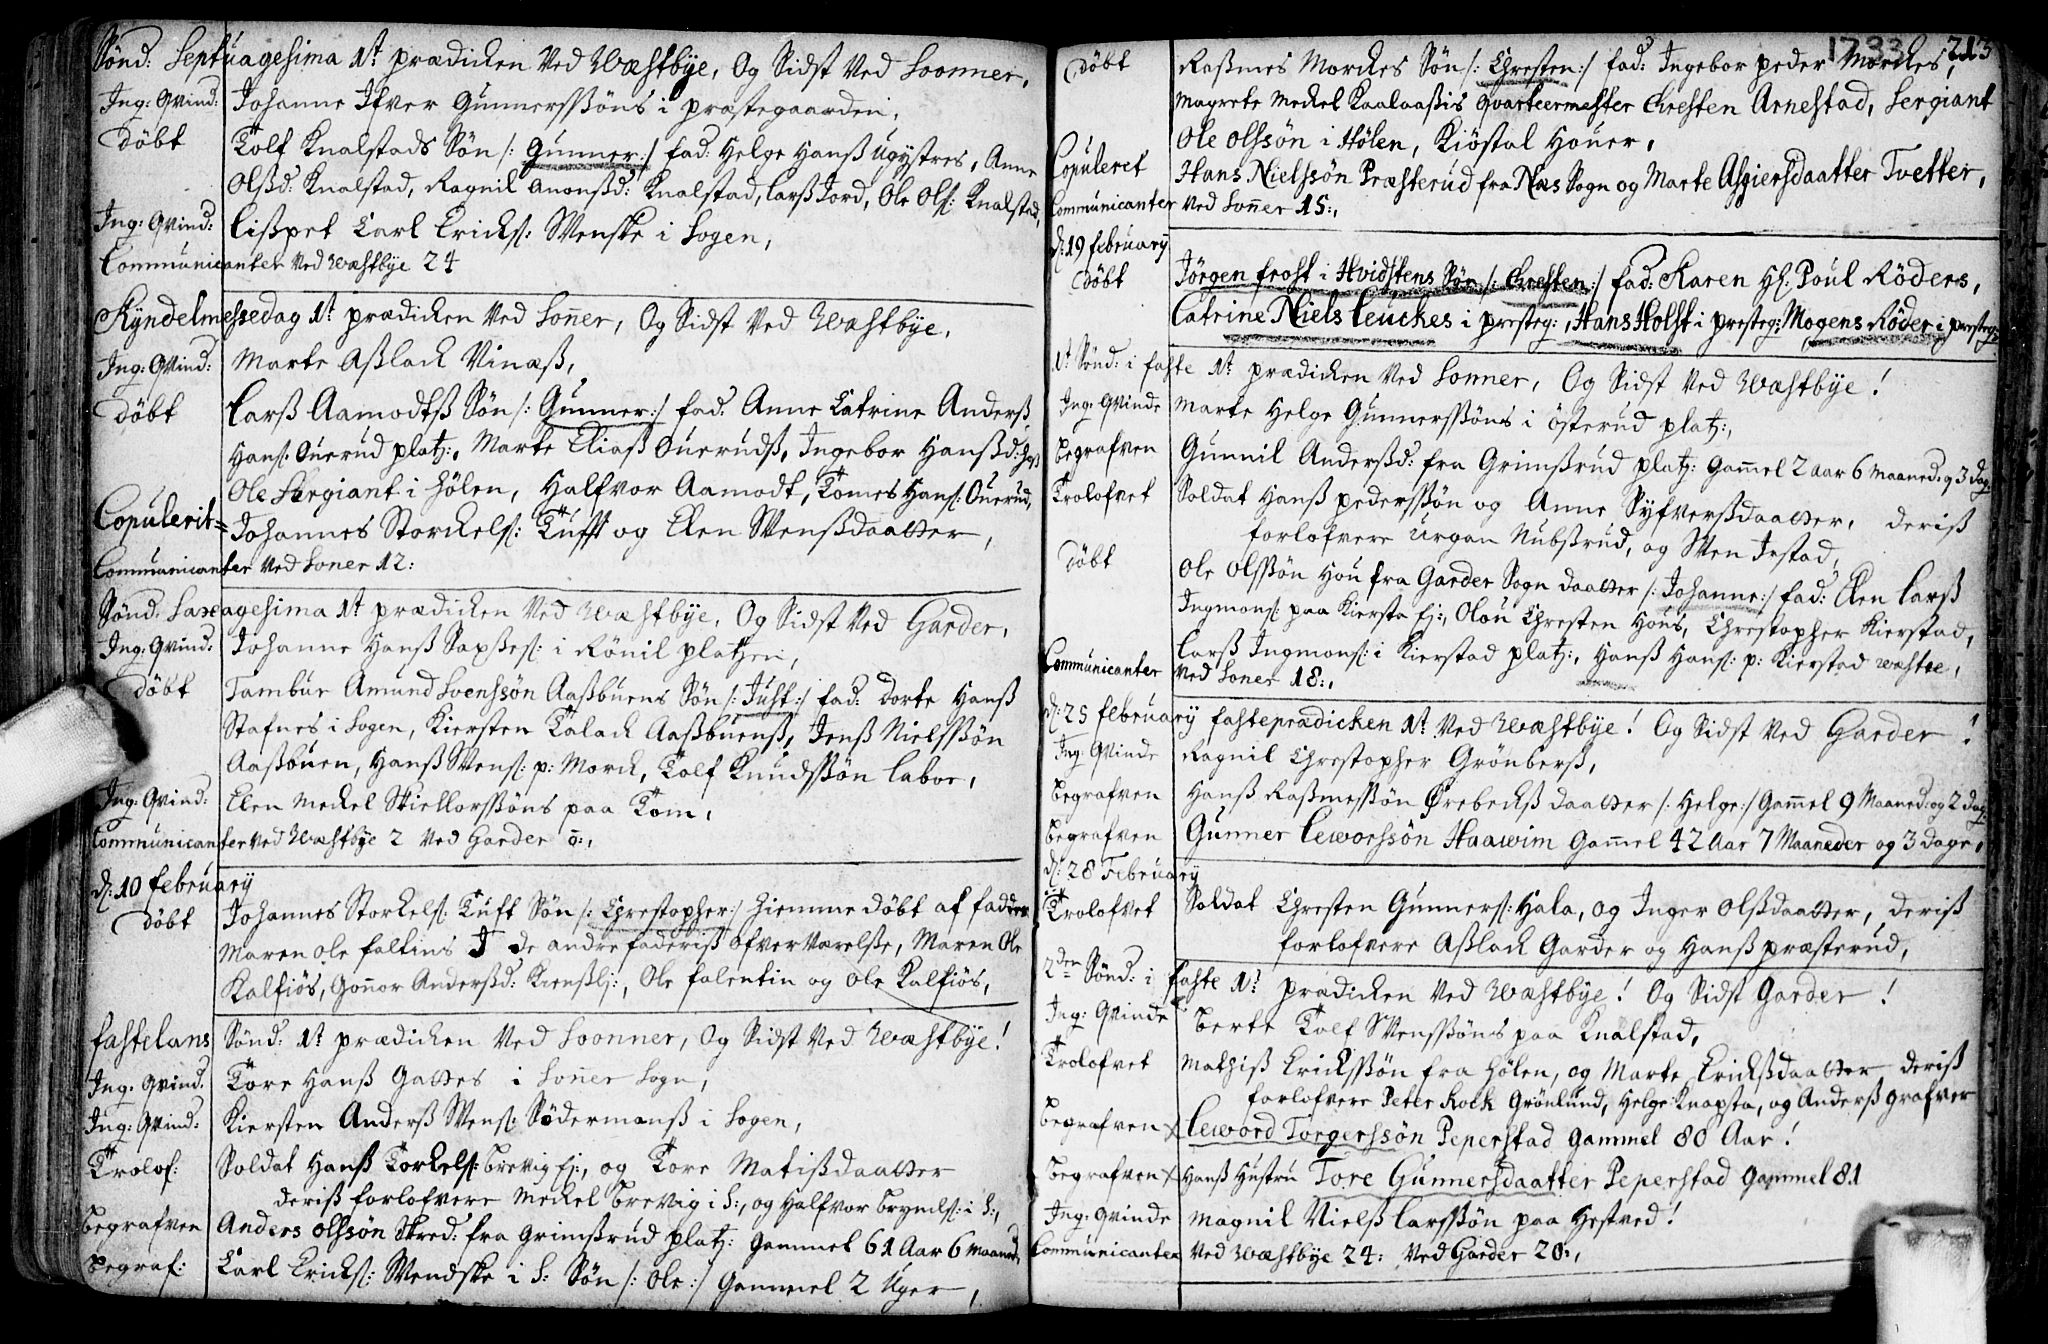 Sönd: Septuagesima 1t prædicken Ved Wæstbye, Og Sidst Ved Soonner,
Ing: Qvind: Johanne Ifver Gunnerssöns i præstegaarden,
döbt Tolf Knalstads Sön /: Gunner :/ fad: Helge Hanß Ugystres, Anne
Olßd: Knalstad, Ragnil Anonßd: Knalstad, Larß Jord, Ole Ols: Knalstad,
Ing: Qvind: Lisßpet Carl Ericks: Svenske i Sogen,
Communicanter Ved Wæstbye 24
Kyndelmessedag 1t prædicken Ved Sonner, Og Sidst Ved Wæstbye,
Ing: Qvind: Marte Aßlack Vinæß,
döbt Larß Aamodtß Sön /: Gunner :/ fad: Anne Catrine Anderß
Hans: Ouerud platz:, Marte Eliaß Oueruds, Ingebor Hanßd:
Ole Sergiant i Hölen, Halfvor Aamodt, Tomes Hans: Ouerud,
Copulerit= Johannes Storckels: Tufft og Elen Svenßdaatter,
Communicanter Ved Soner 12:
Sönd: Saxagesima 1t prædicken Ved Wæstbye, Og Sidst Ved Garder,
Ing: Qvind: Johanne Hanß Saxßes: i Rönil platzen,
döbt Tambur Amund Svenssön Aaßbuens Sön /: Just :/ fad: Dorte Hanß
Stafnes i Sogen, Kiersten Talack Aaßbuenß, Jenß Nielssön
Aaßbuen, Hanß Svens: p: Morck, Tolf Knudssön Labor,
Ing: Qvind: Elen Meckel Skiellorssöns paa Tom,
Communicanter Ved Wæstbye 2 Ved Garder 0:,
d: 10 february
döbt Johannes Storkels: Tuft Sön /: Chrestopher :/ hiemme döbt af fadder
Maren Ole faltins I de andre faderiß ofverværelse, Maren Ole
Kalfiös, Gonnor Anderßd: Kienßlj:, Ole falentin og Ole Kalfiös,
fastelans Sönd: 1t prædicken Ved Soonner, Og Sidst Ved Wæstbye!
Ing: Qvind: Tore Hanß Gattes i Sonner Sogn,
Ing: Qvind: Kiersten Anderß Svens: Södermanß i Sogen,
Trolof: Soldat Hanß Torkels: Brevig Ej:, og Tore Matißdaatter
deriß forlofvere Meckel Brevig i S:, og Halfvor Bryncls: i S:,
begrafven Anders Olssön Skred: fra Grimßrud platz: Gammel 61 Aar 6 Maaned:
Begraf: Carl Ericks: Svendske i S: Sön /: Ole :/ Gammel 2 Uger,
1733 213
döbt Raßmes Morckes Sön /: Chresten :/ fad: Ingebor peder Morckes,
Magrete Meckel Kaalaaßis Qvarteermester Chresten Arnestad, Sergiant
Ole Olssön i Hölen, Kiöstal Houer,
Copuleret Hans Nielssön Præsterud fra Næs Sogn og Marte Asgiersdaatter Tvetter,
Communicanter Ved Sonner 15:,
d: 19 february
döbt Jörgen frost i Hvidstens Sön /: Chresten :/ fad: Karen Hl: Poul Röders,
Catrine Niels Leuckes i presteg:, Hans Holst i presteg: Mogens Röder i presteg:
1t Sönd: i faste 1t prædicken Ved Sonner, Og Sidst Ved Wæstbye!
Ing: Qvinde Marte Helge Gunnerssöns i österud platz:,
begrafven Gunnil Anderßd: fra Grimßrud platz: Gammel 2 aar 6 maaned: og 3 dag:
Trolofvet Soldat Hanß pederssön og Anne Syfverßdaatter, deriß
forlofvere Urgan Nubßrud, og Sven Irstad,
döbt Ole Olssön Hou fra Garder Sogn daatter /: Johanne :/ fad: Elen Larß
Ingmons: paa Kiersta Ej:, Olou Chresten Hous, Chrestopher Kierstad,
Larß Ingmons: i Kierstad platz:, Hanß Hans: p: Kierstad Wæstre,
Communicanter Ved Soner 18:,
d: 25 february fasteprædicken 1t Ved Wæstbye! Og Sidst Ved Garder!
Ing: Qvinde Ragnil Chrestopher Grönberß,
begrafven Hanß Raßmessön Örebeckß daatter /: Helge :/ Gammel 9 Maaned: og 2 dag:
begrafven Gunner Leworssön Haawim Gammel 42 Aar 7 Maaneder og 3 dage,
d: 28 February
Trolofvet Soldat Chresten Gunners: Hala, og Inger Olßdaatter, deriß
forlofvere Aßlack Garder og Hanß præsterud,
2den Sönd: i faste 1t prædicken Ved Wæstbye! Og Sidst Garder!
Ing: Qvinde Berte Tolf Svenssöns paa Knalstad,
Trolofvet Mathiß Erickssön fra Hölen, og Marte Erickßdaatter deriß
forlofvere Peter Rock Grönlund, Helge Knapsta, og Anderß Grafver
begrafven X Leword Torgerssön Peperstad Gammel 80 Aar!
begrafven X Hanß Hustru Tore Gunnersdaatter Peperstad Gammel 81
Ing: Qvinde Magnil Nielß Larssön paa Hestved!
Communicanter Ved Wæstbye 24: Ved Garder 20:,